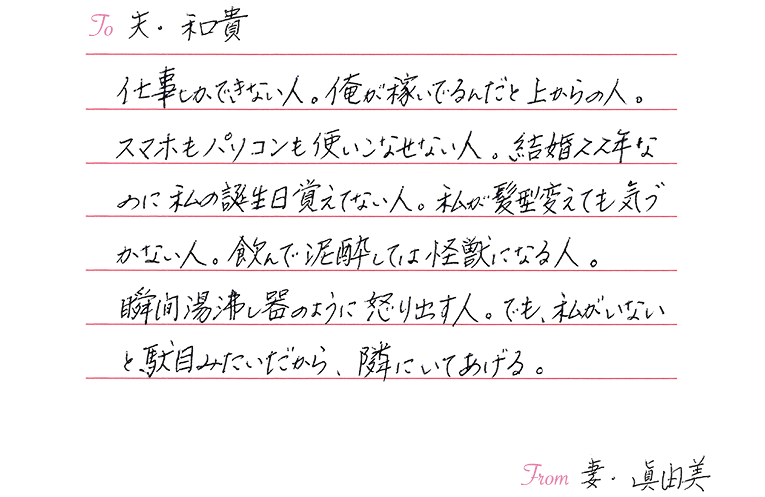 To 夫・和貴
仕事しかできない人。俺が稼いでるんだと上からの人。
スマホもパソコンも使いこなせない人。結婚22年な
のに私の誕生日覚えてない人。私が髪型変えても気づ
かない人。飲んで泥酔しては怪獣になる人。
瞬間湯沸し器のように怒り出す人。でも、私がいない
と駄目みたいだから、隣にいてあげる。
From 妻・眞由美